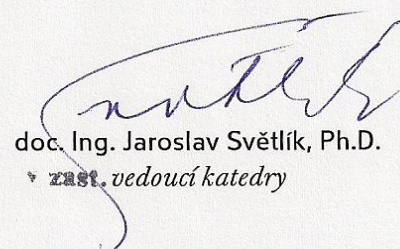 doc. Ing. Jaroslav Světlík, Ph.D.
v zast. vedoucí katedry